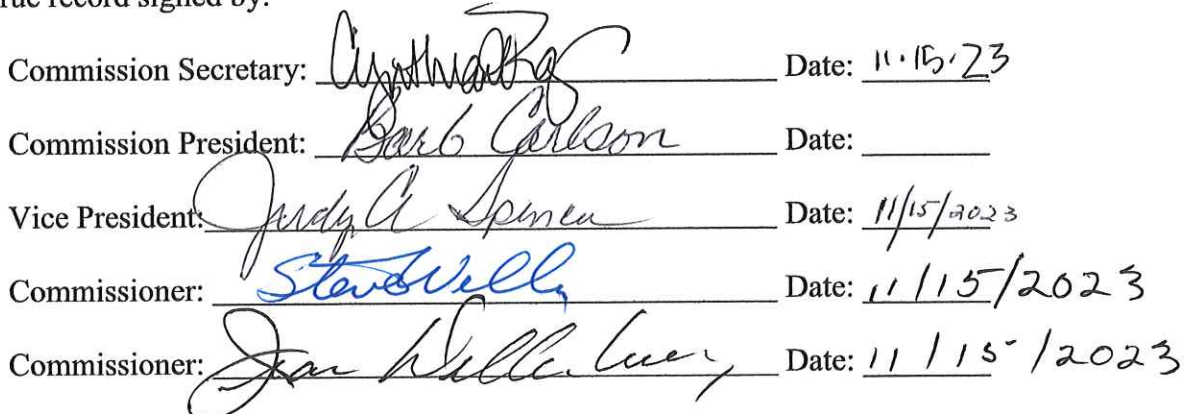 record signed by:
Commission Secretary: Date: 11.15.23
Commission President: Barb Carlson Date:
Vice President: Judy A Spencer Date: 11/15/2023
Commissioner: Date: 11/15/2023
Commissioner: Date: 11/15/2023